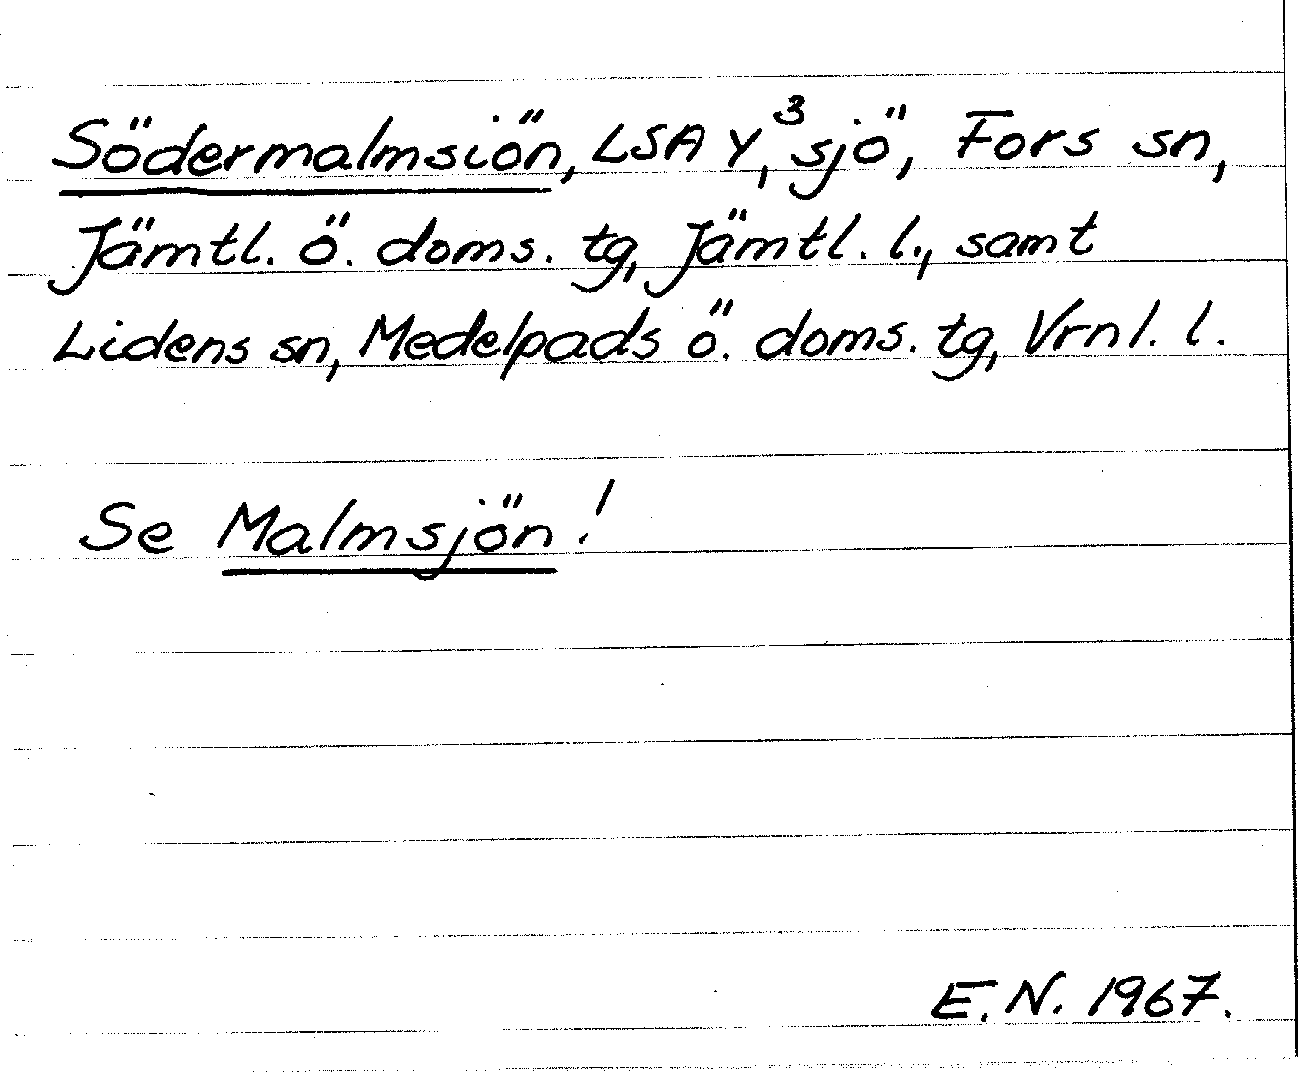 Södermalmsiön, LSA Y,³ sjö, Fors sn,
Jämtl. ö. doms. tg, Jämtl. l., samt
Lidens sn, Medelpads ö. doms. tg, Vrnl. l.
Se Malmsjön!
E.N. 1967.